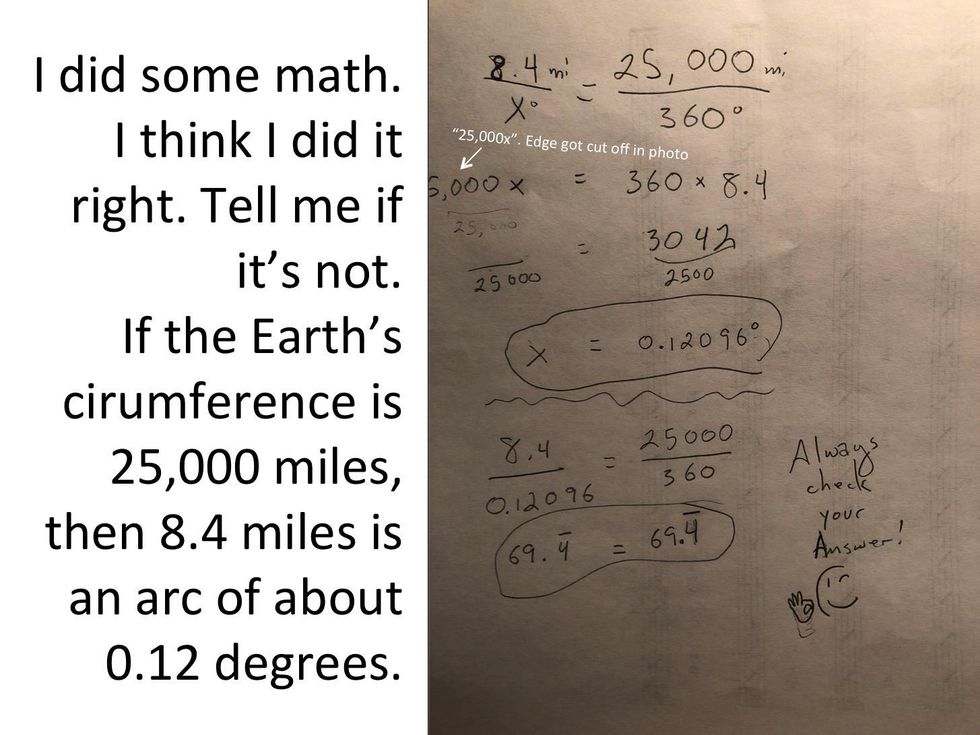 I did some math.
I think I did it
right. Tell me if
it's not.
If the Earth's
cirumference is
25,000 miles,
then 8.4 miles is
an arc of about
0.12 degrees.
8.4 mi = 25,000 mi
X° 360°
"25,000x". Edge got cut off in photo
5,000 x = 360 × 8.4
25,000
= 3042
25000 2500
X = 0.12096°
8.4 = 25000
0.12096 360
69.4̅ = 69.4̅
Always
check
your
Answer!